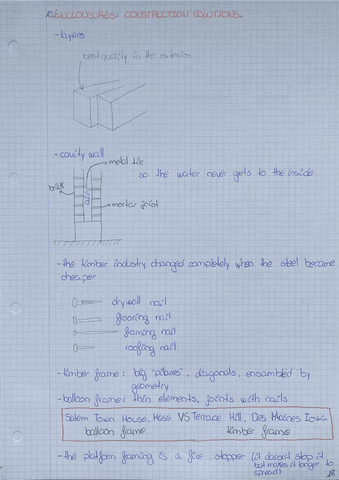 ENCLOUSURES: CONSTRUCTION SOLUTIONS.
-layers
best quality in the exterior
-cavity wall
metal tie
so the water never gets to the inside
brick
air
mortar joint
-the timber industry changed completely when the steel became
cheaper
drywall nail
flooring nail
framing nail
roofing nail
-timber frame: big "pilares", diagonals, ensambled by
geometry
-balloon frame: thin elements, joints with nails
Salem Town House, Mass VS Terrace Hill, Des Moines Iowa
balloon frame timber frame
-the platform framing is a fire stopper (it doesn't stop it,
but makes it longer to
spread)